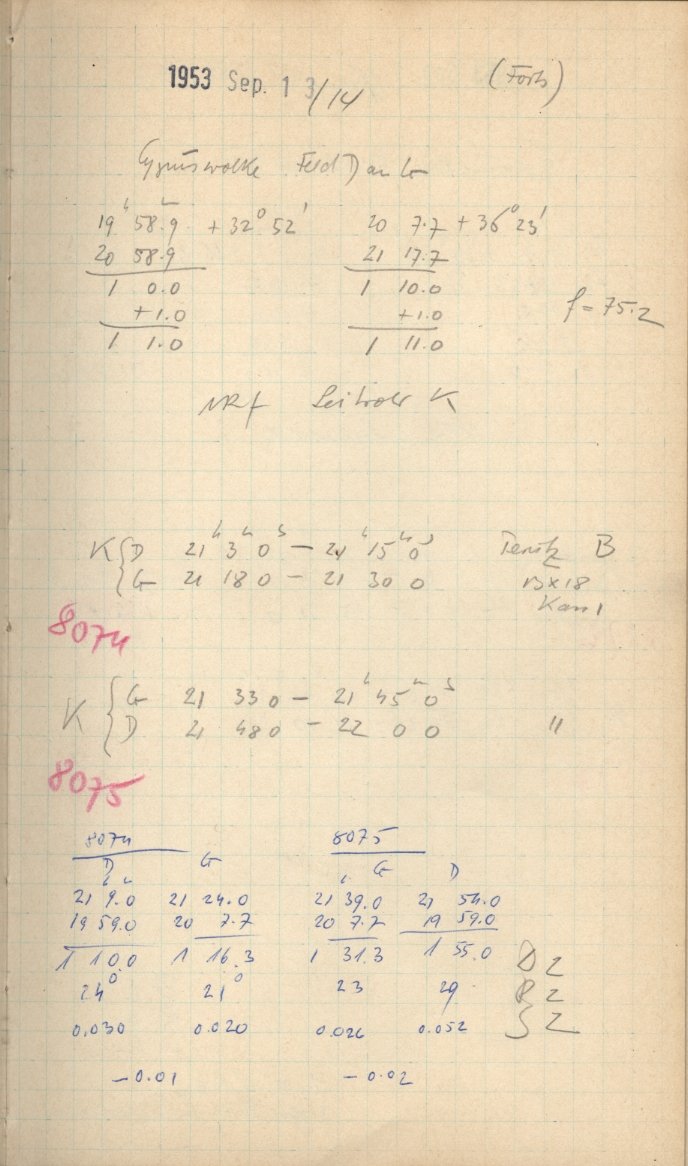 1953 Sep. 1 3/14 (Forts)
Cygnuswolke Feld D an G
19ʰ 58.9 + 32° 52' 20 7.7 + 36° 23'
20 58.9 21 17.7
1 0.0 1 10.0
+1.0 +1.0 f = 75.2
1 1.0 1 11.0
K
K { D 21ʰ 3ᵐ 0ˢ — 21ʰ 15ᵐ 0ˢ B
G 21 18 0 — 21 30 0 13 x 18
8074
K { G 21 33 0 — 21ʰ 45ᵐ 0ˢ
D 21 48 0 — 22 0 0 "
8075
8074 8075
D G G D
21 9.0 21 24.0 21 39.0 21 54.0
19 59.0 20 7.7 20 7.7 19 59.0
1 10.0 1 16.3 1 31.3 1 55.0 D 2
24° 21° 23 29 R 2
0.030 0.020 0.026 0.052 S 2
-0.01 -0.02